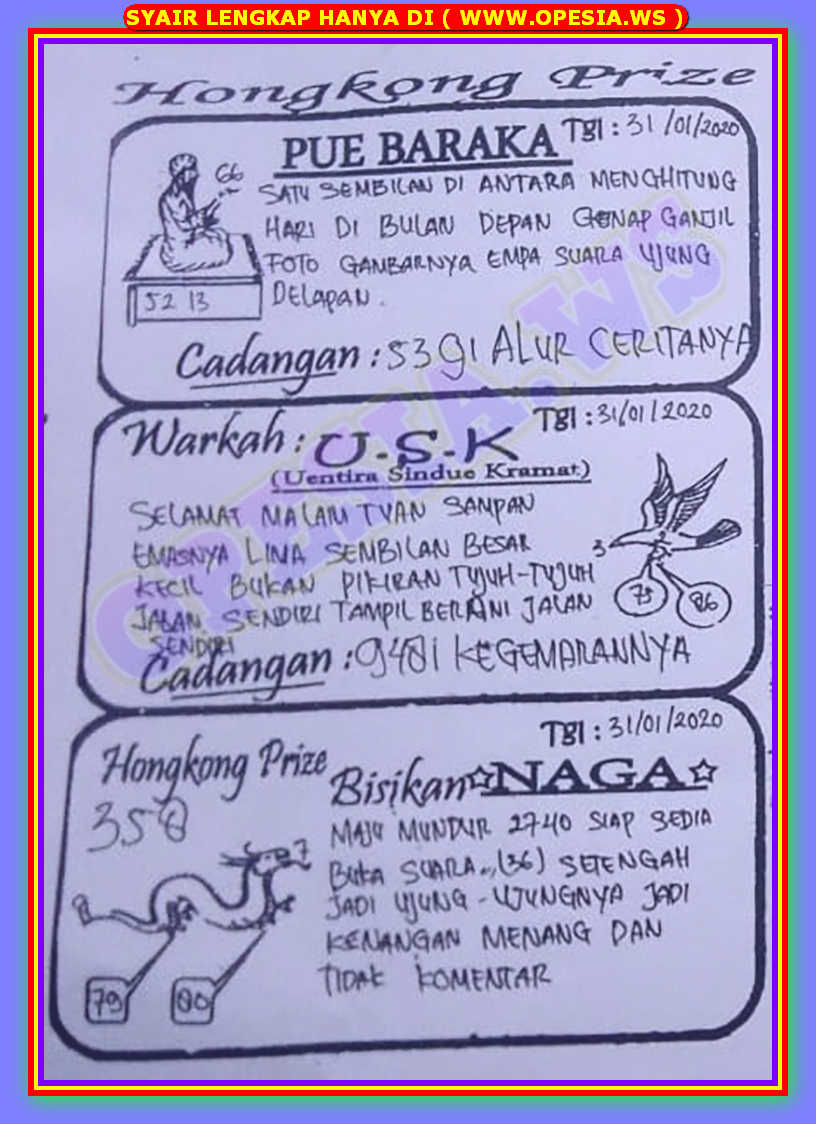 SYAIR LENGKAP HANYA DI ( WWW.OPESIA.WS )
Hongkong Prize
PUE BARAKA Tgl : 31/01/2020
66
SATU SEMBILAN DI ANTARA MENGHITUNG
HARI DI BULAN DEPAN GENAP GANJIL
FOTO GANBARNYA EMPA SUARA UJUNG
DELAPAN.
52 13
Cadangan : 5391 ALUR CERITANYA
Warkah : U-S-K Tgl : 31/01/2020
(Uentira Sindue Kramat)
SELAMAT MALAM TUAN SAMPAN
EMASNYA LIMA SEMBILAN BESAR
KECIL BUKAN PIKIRAN TUJUH-TUJUH
JALAN SENDIRI TAMPIL BERANI JALAN
SENDIRI
3
75 86
Cadangan : 9481 KEGEMARANNYA
Tgl : 31/01/2020
Hongkong Prize
Bisikan ☆NAGA☆
350
MAJU MUNDUR 2740 SIAP SEDIA
BUKA SUARA.,,(36) SETENGAH
JADI UJUNG-UJUNGNYA JADI
KENANGAN MENANG DAN
TIDAK KOMENTAR
7
8
79 00
OPESIA.WS